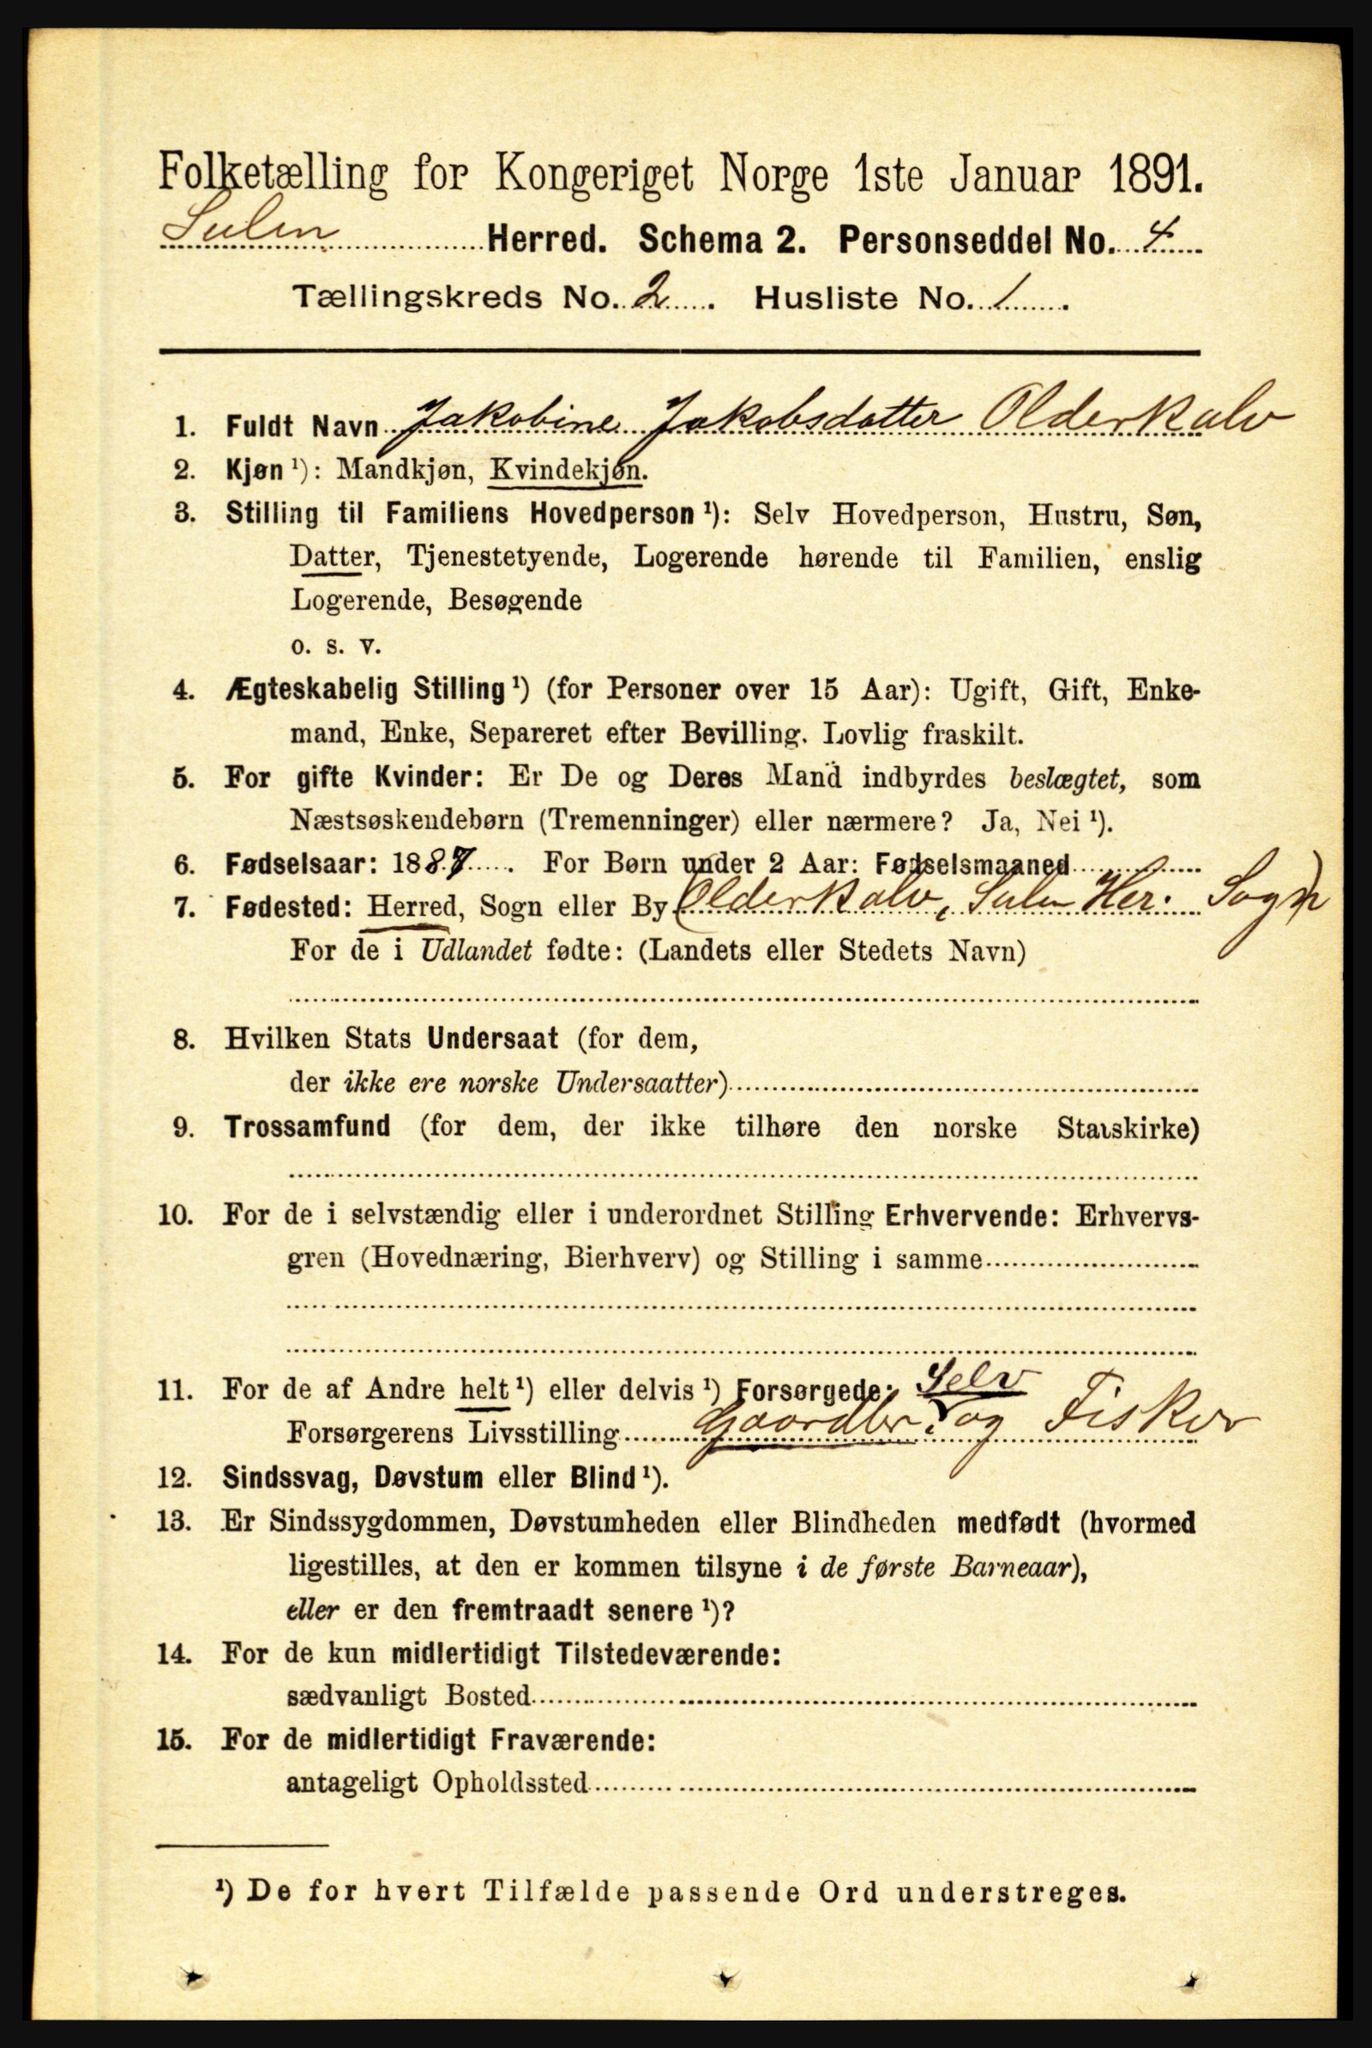 Folketælling for Kongeriget Norge 1ste Januar 1891.
Sulen Herred. Schema 2. Personseddel No. 4
Tællingskreds No. 2. Husliste No. 1.
1. Fuldt Navn Jakobine Jakobsdatter Olderkalv
2. Kjøn¹): Mandkjøn, Kvindekjøn.
3. Stilling til Familiens Hovedperson¹): Selv Hovedperson, Hustru, Søn,
Datter, Tjenestetyende, Logerende hørende til Familien, enslig
Logerende, Besøgende
o. s. v.
4. Ægteskabelig Stilling¹) (for Personer over 15 Aar): Ugift, Gift, Enke-
mand, Enke, Separeret efter Bevilling. Lovlig fraskilt.
5. For gifte Kvinder: Er De og Deres Mand indbyrdes beslægtet, som
Næstsøskendebørn (Tremenninger) eller nærmere? Ja, Nei¹).
6. Fødselsaar: 1887. For Børn under 2 Aar: Fødselsmaaned
7. Fødested: Herred, Sogn eller By (Olderkalv, Sulen Her. Sogn)
For de i Udlandet fødte: (Landets eller Stedets Navn)
8. Hvilken Stats Undersaat (for dem,
der ikke ere norske Undersaatter)
9. Trossamfund (for dem, der ikke tilhøre den norske Statskirke)
10. For de i selvstændig eller i underordnet Stilling Erhvervende: Erhvervs-
gren (Hovednæring, Bierhverv) og Stilling i samme
11. For de af Andre helt¹) eller delvis¹) Forsørgede: Selv
Forsørgerens Livsstilling Gaardbr. og Fisker
12. Sindssvag, Døvstum eller Blind¹).
13. Er Sindssygdommen, Døvstumheden eller Blindheden medfødt (hvormed
ligestilles, at den er kommen tilsyne i de første Barneaar),
eller er den fremtraadt senere¹)?
14. For de kun midlertidigt Tilstedeværende:
sædvanligt Bosted
15. For de midlertidigt Fraværende:
antageligt Opholdssted
¹) De for hvert Tilfælde passende Ord understreges.